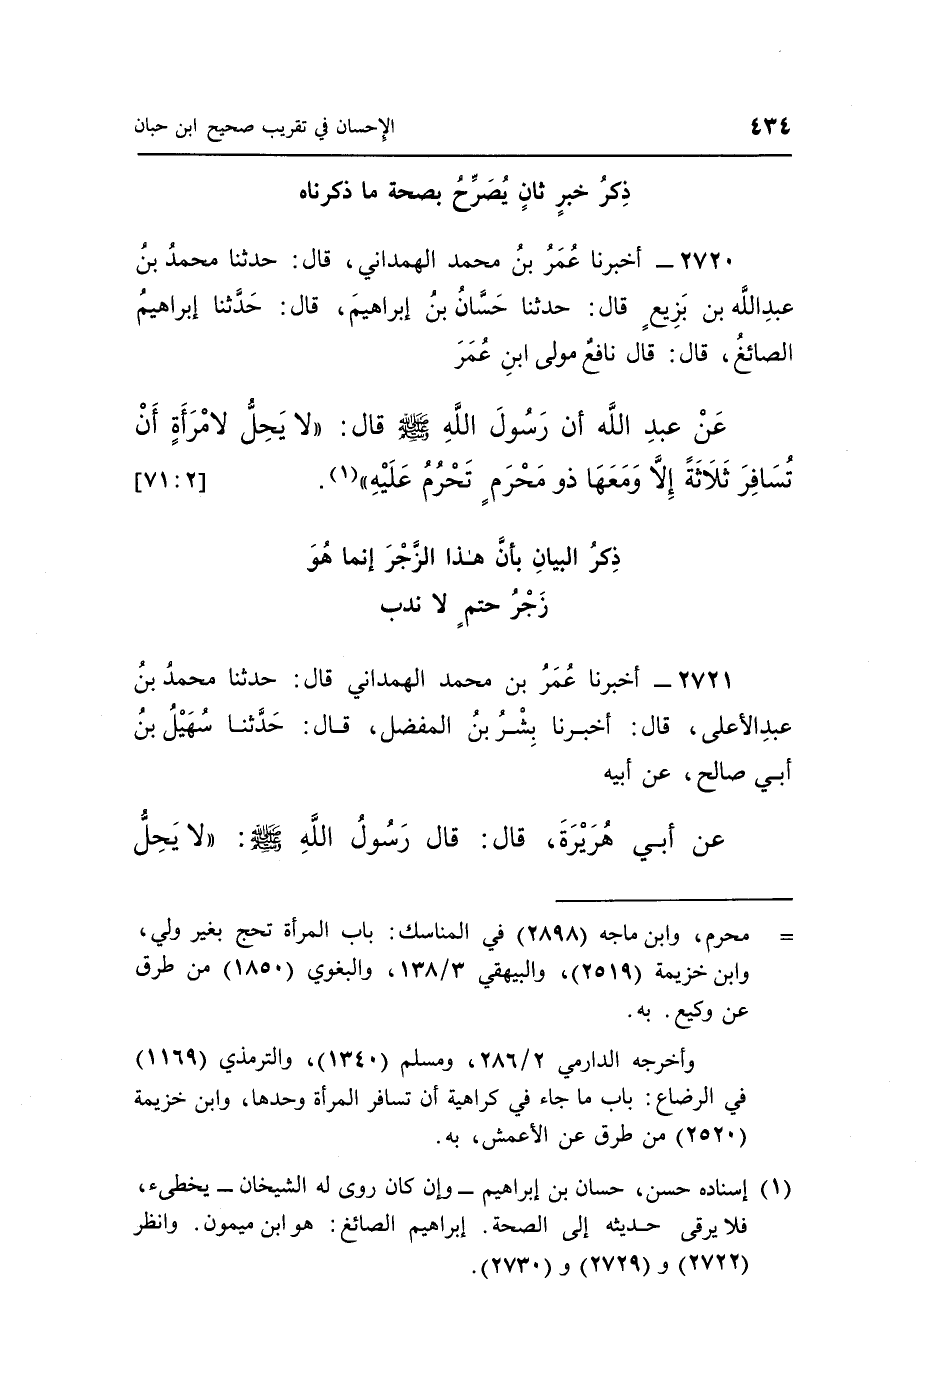 ٤٣٤ الإحسان في تقريب صحيح ابن حبان
ذِكرُ خبرٍ ثانٍ يُصَرِّحُ بصحة ما ذكرناه
٢٧٢٠ ــ أخبرنا عُمَرُ بنُ محمد الهمداني، قال: حدثنا محمدُ بنُ
عبدِاللَّه بن بَزِيعٍ قال: حدثنا حَسَّانُ بنُ إبراهيمَ، قال: حَدَّثنا إبراهيمُ
الصائغُ، قال: قال نافعٌ مولى ابنِ عُمَرَ
عَنْ عبدِ اللَّه أن رَسُولَ اللَّهِ ﷺ قال: «لا يَحِلُّ لامْرَأَةٍ أَنْ
تُسَافِرَ ثَلَاثَةً إِلَّا وَمَعَهَا ذو مَحْرَمٍ تَحْرُمُ عَلَيْهِ»(١). [٧١:٢]
ذِكرُ البيانِ بأنَّ هـٰذا الزَّجْرَ إنما هُوَ
زَجْرُ حتمٍ لا ندب
٢٧٢١ ــ أخبرنا عُمَرُ بن محمد الهمداني قال: حدثنا محمدُ بنُ
عبدِالأعلى، قال: أخبرنا بِشْرُ بنُ المفضل، قال: حَدَّثنا سُهَيْلُ بنُ
أبي صالح، عن أبيه
عن أبي هُرَيْرَةَ، قال: قال رَسُولُ اللَّهِ ﷺ: «لا يَحِلُّ
= محرم، وابن ماجه (٢٨٩٨) في المناسك: باب المرأة تحج بغير ولي،
وابن خزيمة (٢٥١٩)، والبيهقي ١٣٨/٣، والبغوي (١٨٥٠) من طرق
عن وكيع. به.
وأخرجه الدارمي ٢٨٦/٢، ومسلم (١٣٤٠)، والترمذي (١١٦٩)
في الرضاع: باب ما جاء في كراهية أن تسافر المرأة وحدها، وابن خزيمة
(٢٥٢٠) من طرق عن الأعمش، به.
(١) إسناده حسن، حسان بن إبراهيم ــ وإن كان روى له الشيخان ــ يخطىء،
فلا يرقى حديثه إلى الصحة. إبراهيم الصائغ: هو ابن ميمون. وانظر
(٢٧٢٢) و (٢٧٢٩) و (٢٧٣٠).